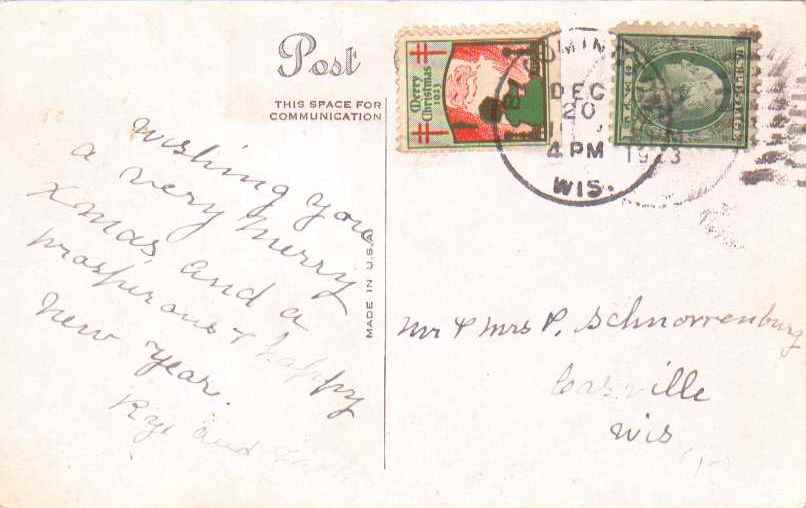 Post
THIS SPACE FOR
COMMUNICATION
Merry
Christmas
1923
DEC
20
4 PM
1923
WIS.
wishing you
a very merry
Xmas and a
prosperous & happy
new year.
and
MADE IN U.S.A.
Mr & Mrs P. Schnorrenburg
Wis